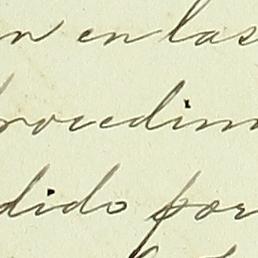 n en las
procedim
dido por